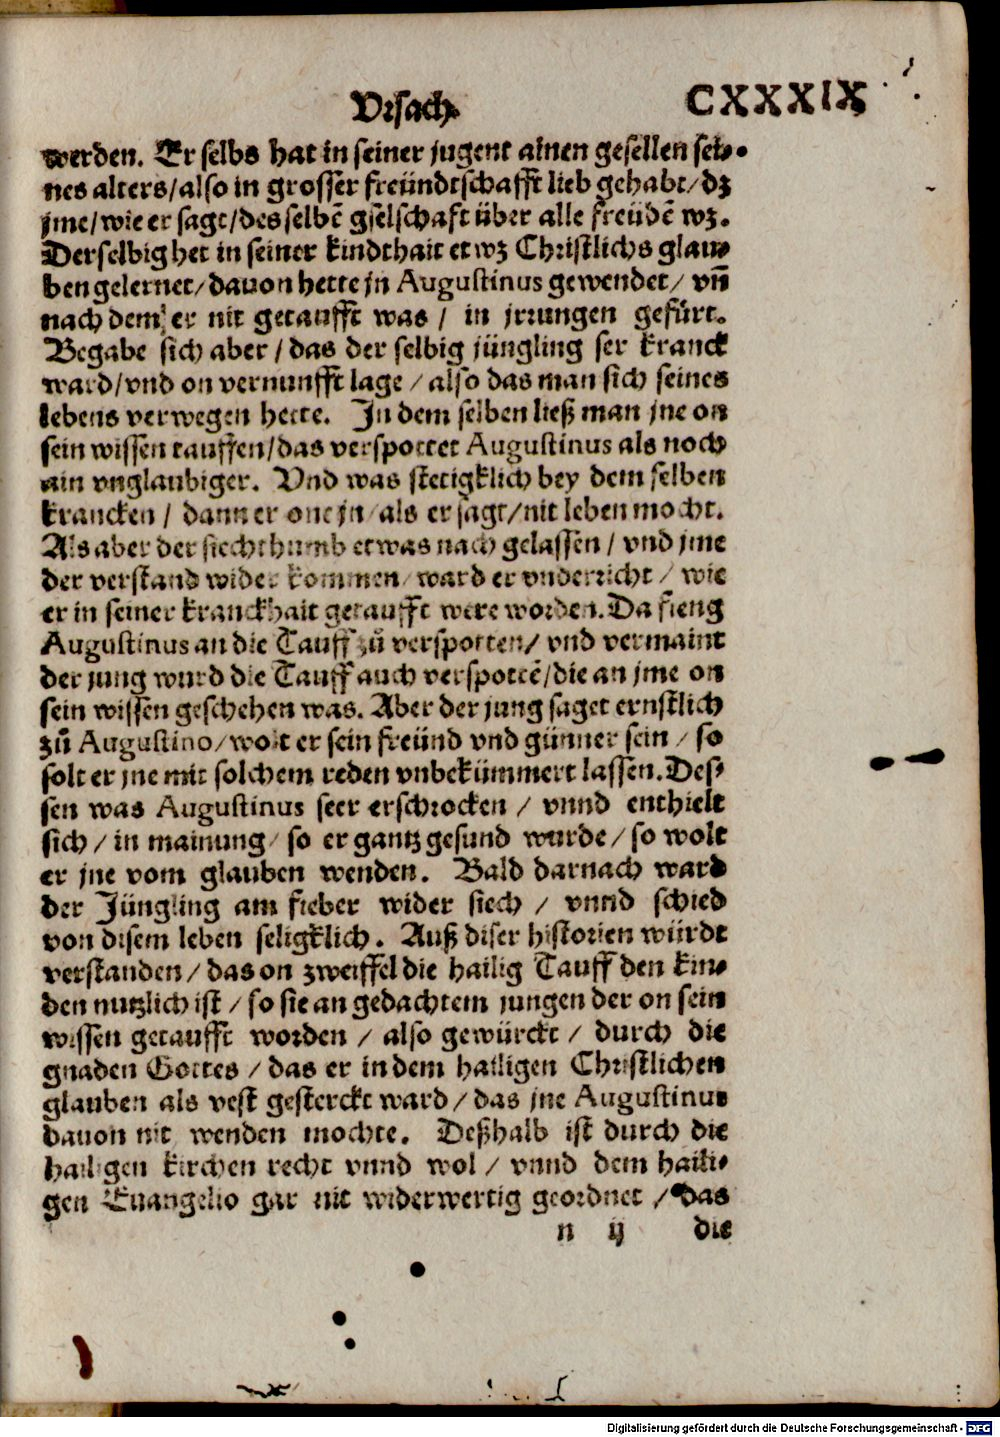 Vrsach. CXXXIX
werden. Er selbs hat in seiner jugent ainen gesellen sei-
nes alters/also in grosser freündtschafft lieb gehabt/dz
jme/wie er sagt/des selbē gselschaft über alle freüdē wz.
Derselbig het in seiner kindthait etwz Christlichs glau-
ben gelernet/dauon hette jn Augustinus gewendet/ vñ
nach dem er nit getaufft was / in jrrungen gefürt.
Begabe sich aber / das der selbig jüngling ser kranck
ward/vnd on vernunfft lage / also das man sich seines
lebens verwegen hette. In dem selben ließ man jne on
sein wissen tauffen/das verspottet Augustinus als noch
ain vnglaubiger. Vnd was stetigklich bey dem selben
krancken / dann er one jn / als er sagt/nit leben mocht.
Als aber der siechthumb etwas nach gelassen / vnd jme
der verstand wider kommen/ ward er vnderricht / wie
er in seiner kranckhait getaufft were worden. Da fieng
Augustinus an die Tauff zů verspotten/ vnd vermaint
der jung wurd die Tauff auch verspottē/die an jme on
sein wissen geschehen was. Aber der jung saget ernstlich
zů Augustino/wolt er sein freünd vnd günner sein / so
solt er jne mit solchem reden vnbekümmert lassen. Des-
sen was Augustinus seer erschrocken / vnnd enthielt
sich / in mainung/ so er gantz gesund wurde/ so wolt
er jne vom glauben wenden. Bald darnach ward
der Jüngling am fieber wider siech / vnnd schied
von disem leben seligklich. Auß diser historien würdt
verstanden/das on zweiffel die hailig Tauff den kin-
den nutzlich ist / so sie an gedachtem jungen der on sein
wissen getaufft worden / also gewürckt / durch die
gnaden Gottes / das er in dem hailigen Christlichen
glauben als vest gesterckt ward / das jne Augustinus
dauon nit wenden mochte. Deßhalb ist durch die
hailigen kirchen recht vnnd wol / vnnd dem haili-
gen Euangelio gar nit widerwertig geordnet / das
n ij die
Digitalisierung gefördert durch die Deutsche Forschungsgemeinschaft - DFG